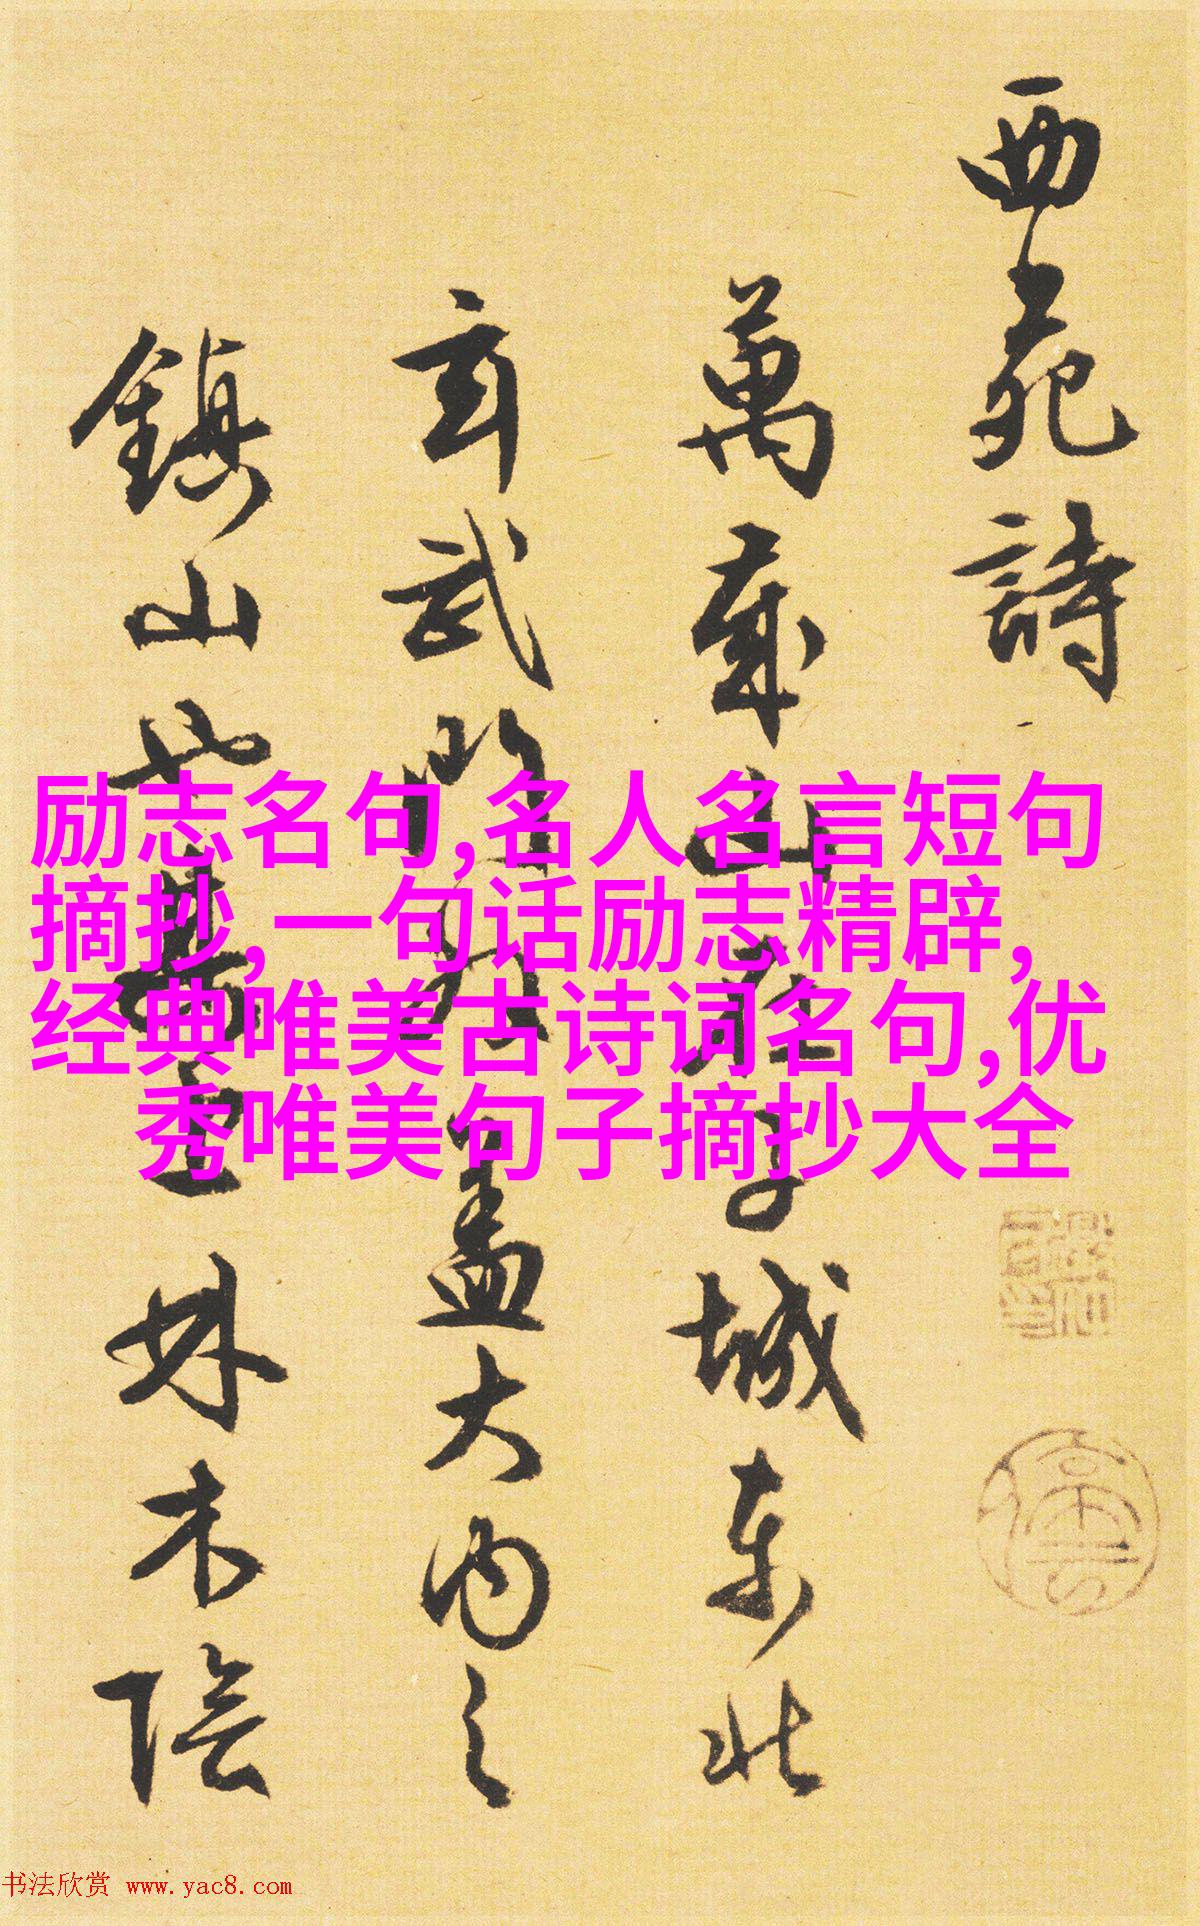 西苑詩
萬歲山在子城東北
玄武門外蓋大內之
鎮山也其上林木陰
励志名句,名人名言短句
摘抄,一句话励志精辟,
经典唯美古诗词名句,优
秀唯美句子摘抄大全
书法欣赏 www.yac8.com